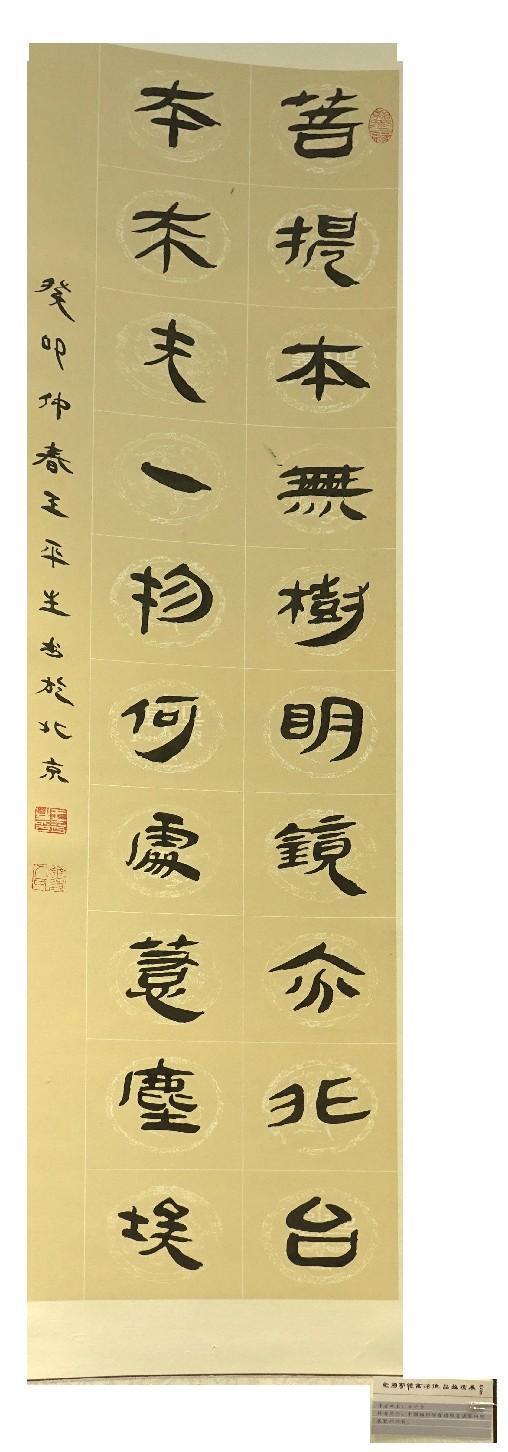 菩提本無樹明鏡亦非台
本来无一物何處惹塵埃
癸卯仲春王平生书於北京